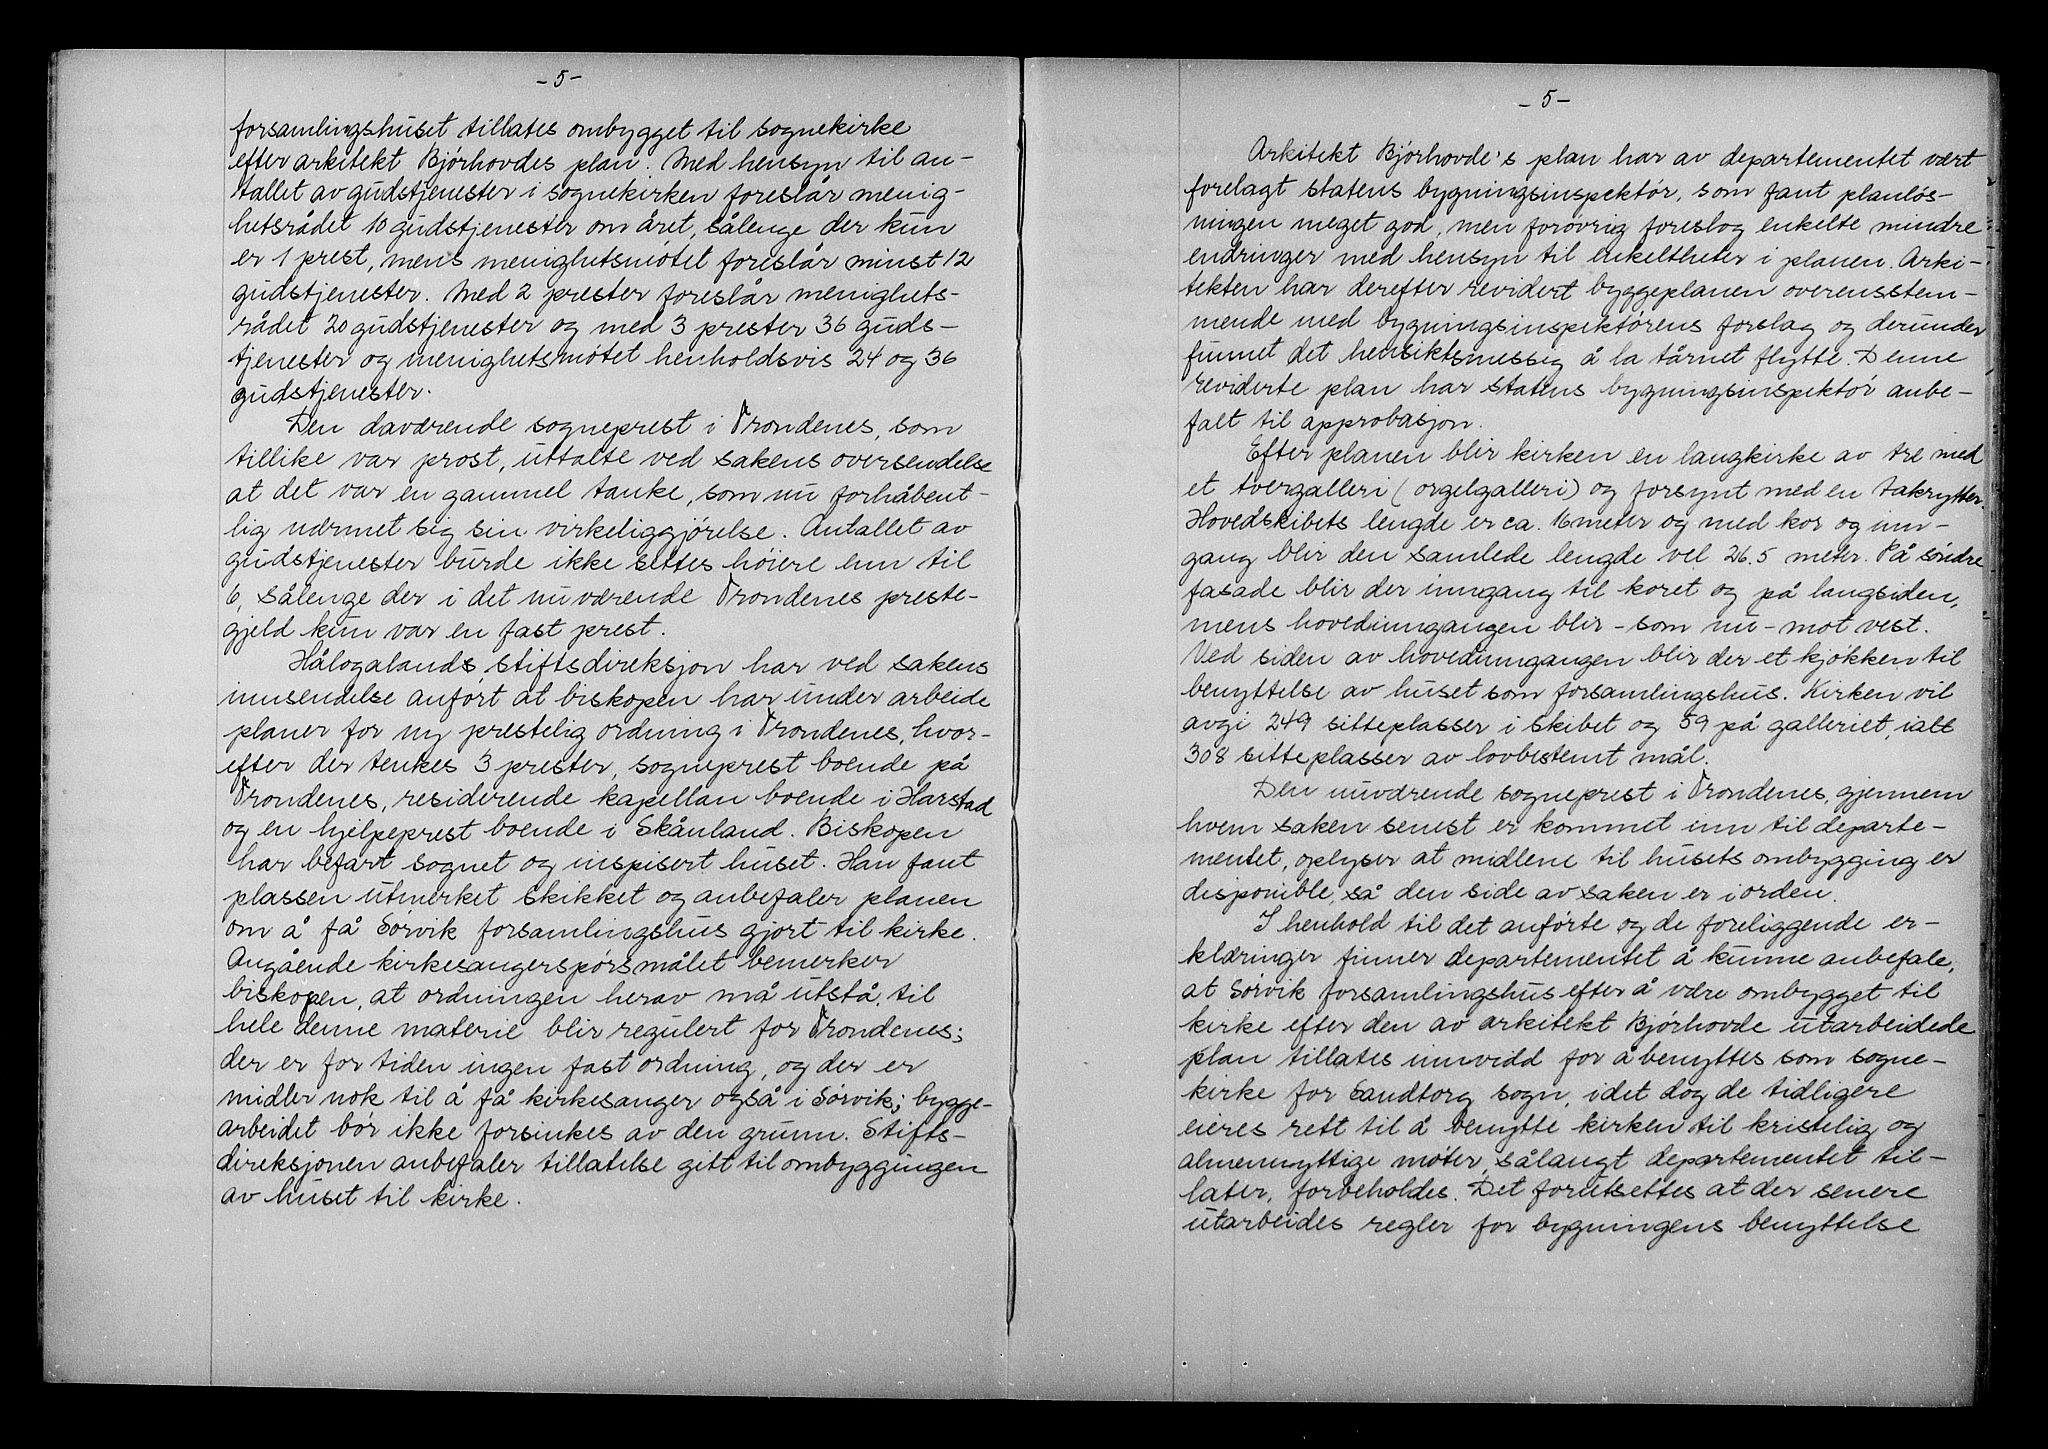 -5-
forsamlingshuset tillates ombygget til sognekirke
efter arkitekt Bjørhovdes plan. Med hensyn til an-
tallet av gudstjenester i sognekirken foreslår menig-
hetsrådet 10 gudstjenester om året, sålenge der kun
er 1 prest, mens menighetsmøtet foreslår minst 12
gudstjenester. Med 2 prester foreslår menighets-
rådet 20 gudstjenester og med 3 prester 36 guds-
tjenester og menighetsmøtet henholdsvis 24 og 36
gudstjenester.
Den daværende sogneprest i Trondenes, som
tillike var prost, uttalte ved sakens oversendelse
at det var en gammel tanke, som nu forhåbent-
lig nærmet sig sin virkeliggjørelse. Antallet av
gudstjenester burde ikke settes høiere enn til
6, sålenge der i det nuværende Trondenes preste-
gjeld kun var en fast prest.
Hålogalands stiftsdireksjon har ved sakens
innsendelse anført at biskopen har under arbeide
planer for ny prestelig ordning i Trondenes, hvor-
efter der tenkes 3 prester, sogneprest boende på
Trondenes, residerende kapellan boende i Harstad
og en hjelpeprest boende i Skånland. Biskopen
har befart sognet og inspisert huset. Han fant
plassen utmerket skikket og anbefaler planen
om å få Sørvik forsamlingshus gjort til kirke.
Angående kirkesangerspørsmålet bemerker
biskopen, at ordningen herav må utstå, til
hele denne materie blir regulert for Trondenes;
der er for tiden ingen fast ordning, og der er
midler nok til å få kirkesanger også i Sørvik; bygge-
arbeidet bør ikke forsinkes av den grunn. Stifts-
direksjonen anbefaler tillatelse gitt til ombyggingen
av huset til kirke.
-5-
Arkitekt Bjørhovde's plan har av departementet vært
forelagt statens bygningsinspektør, som fant planløs-
ningen meget god, men forøvrig foreslog enkelte mindre
endringer med hensyn til enkeltheter i planen. Arki-
tekten har derefter revidert byggeplanen overensstem-
mende med bygningsinspektørens forslag og derunder
funnet det hensiktsmessig å la tårnet flytte. Denne
reviderte plan har statens bygningsinspektør anbe-
falt til approbasjon.
Efter planen blir kirken en langkirke av tre med
et tvergalleri (orgelgalleri) og forsynt med en takrytter.
Hovedskibets lengde er ca. 16 meter og med kor og inn-
gang blir den samlede lengde vel 26.5 meter. På søndre
fasade blir der inngang til koret og på langsiden,
mens hovedinngangen blir - som nu - mot vest.
Ved siden av hovedinngangen blir der et kjøkken til
benyttelse av huset som forsamlingshus. Kirken vil
avgi 249 sitteplasser i skibet og 59 på galleriet, ialt
308 sitteplasser av lovbestemt mål.
Den nuværende sogneprest i Trondenes, gjennem
hvem saken senest er kommet inn til departe-
mentet, oplyser at midlene til husets ombygging er
disponible, så den side av saken er i orden.
I henhold til det anførte og de foreliggende er-
klæringer finner departementet å kunne anbefale,
at Sørvik forsamlingshus efter å være ombygget til
kirke efter den av arkitekt Bjørhovde utarbeidede
plan tillates innvidd for å benyttes som sogne-
kirke for Sandtorg sogn, idet dog de tidligere
eieres rett til å benytte kirken til kristelig og
almennyttige møter, sålangt departementet til-
later, forbeholdes. Det forutsettes at der senere
utarbeides regler for bygningens benyttelse